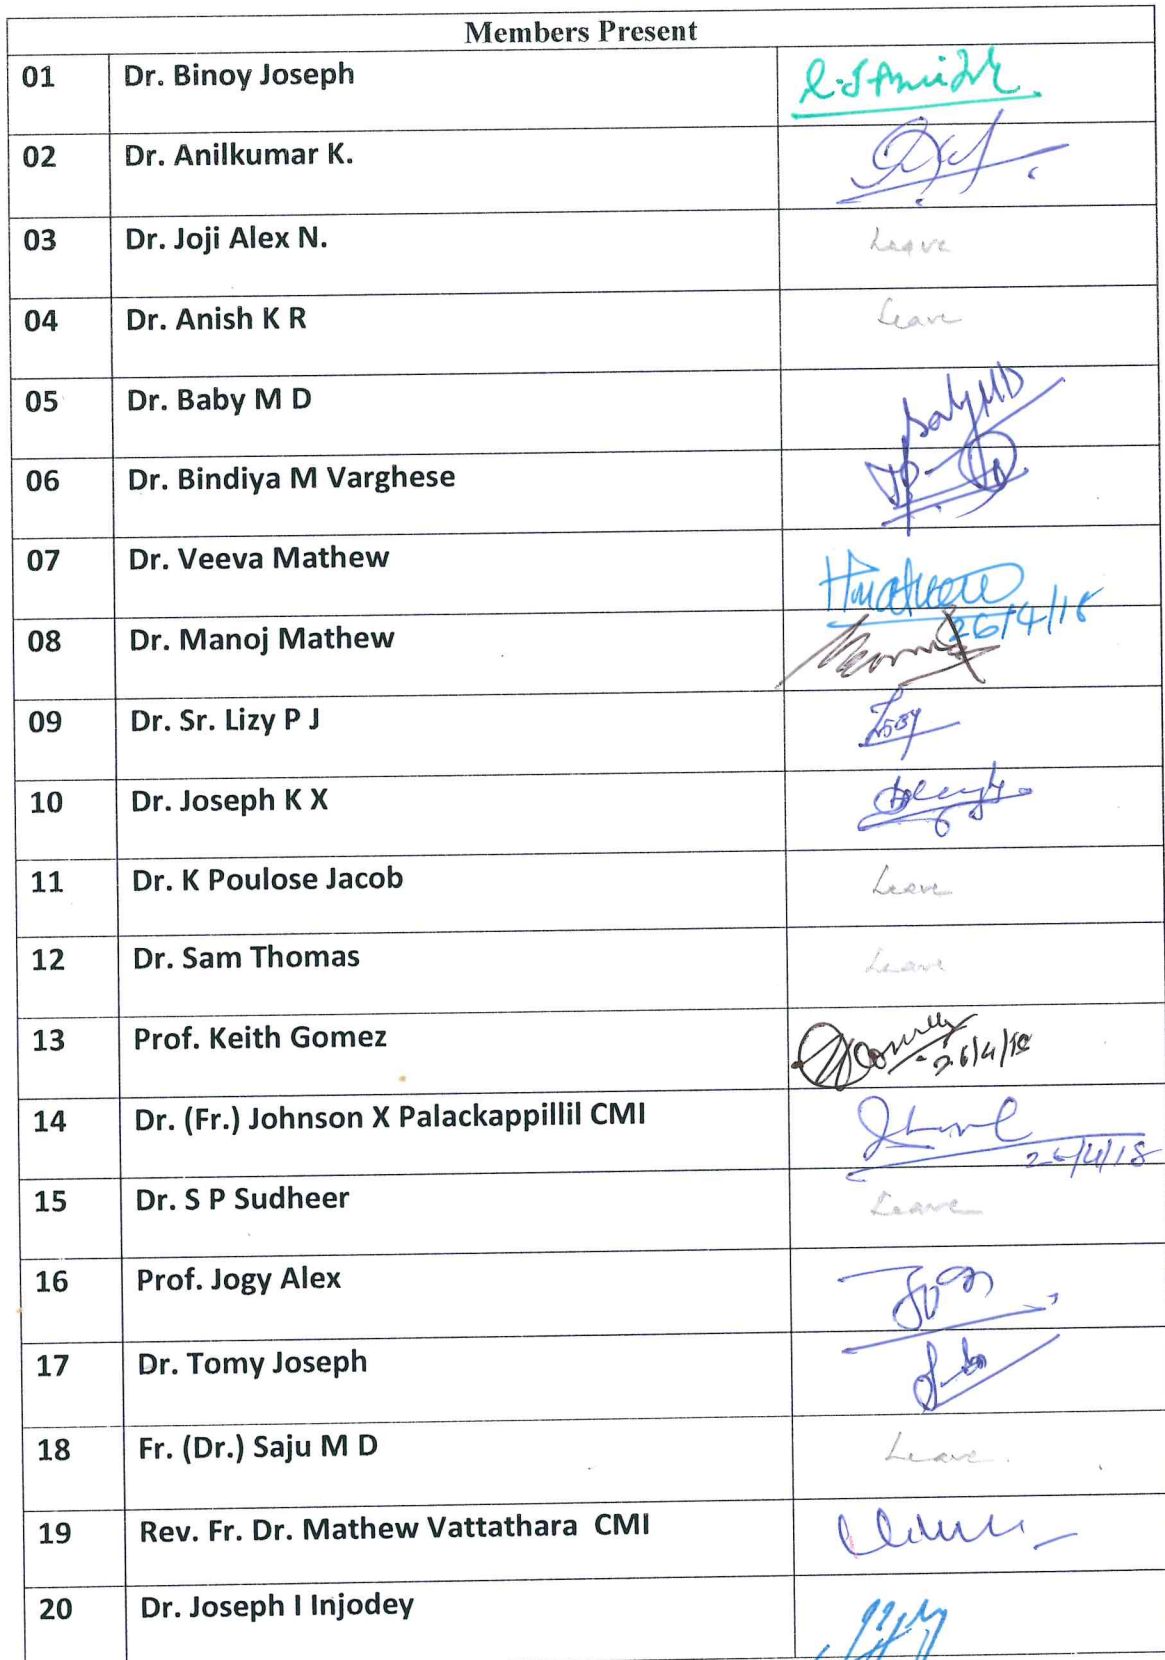 Members Present
01 Dr. Binoy Joseph
02 Dr. Anilkumar K.
03 Dr. Joji Alex N. Leave
04 Dr. Anish K R Leave
05 Dr. Baby M D BabyMD
06 Dr. Bindiya M Varghese
07 Dr. Veeva Mathew 26/4/18
08 Dr. Manoj Mathew
09 Dr. Sr. Lizy P J
10 Dr. Joseph K X
11 Dr. K Poulose Jacob Leave
12 Dr. Sam Thomas Leave
13 Prof. Keith Gomez 26/4/18
14 Dr. (Fr.) Johnson X Palackappillil CMI 26/4/18
15 Dr. S P Sudheer Leave
16 Prof. Jogy Alex
17 Dr. Tomy Joseph
18 Fr. (Dr.) Saju M D Leave
19 Rev. Fr. Dr. Mathew Vattathara CMI
20 Dr. Joseph I Injodey